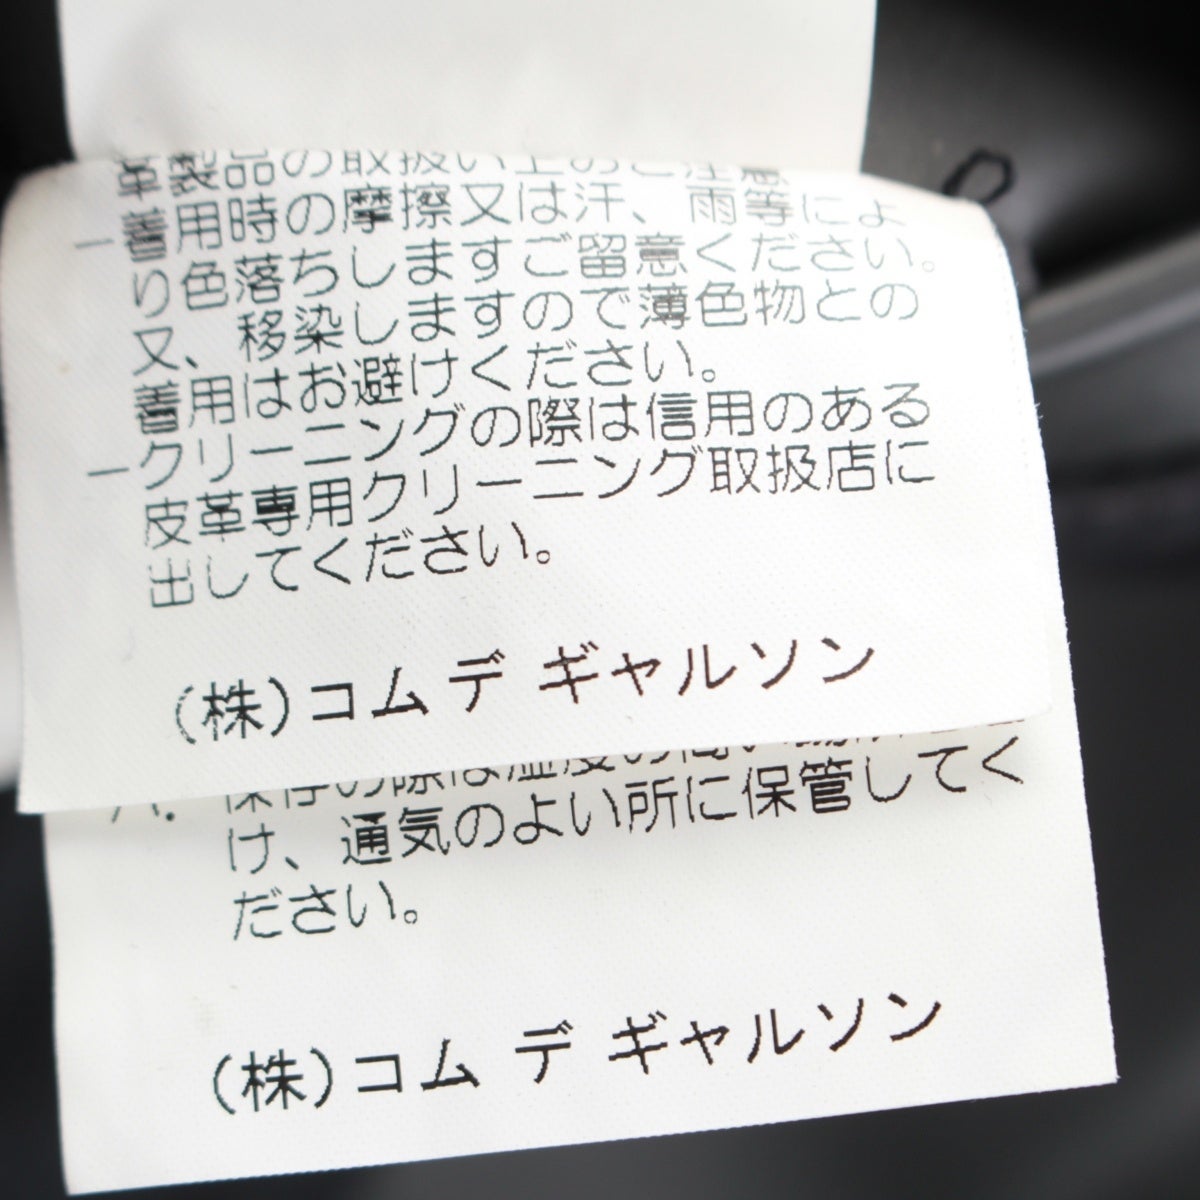 革製品の取扱い上のご注意
ー着用時の摩擦又は汗、雨等によ
り色落ちしますご留意ください。
又、移染しますので薄色物との
着用はお避けください。
ークリーニングの際は信用のある
皮革専用クリーニング取扱店に
出してください。
(株)コム デ ギャルソン
保存の際は湿度の高い
け、通気のよい所に保管してく
ださい。
(株)コム デ ギャルソン